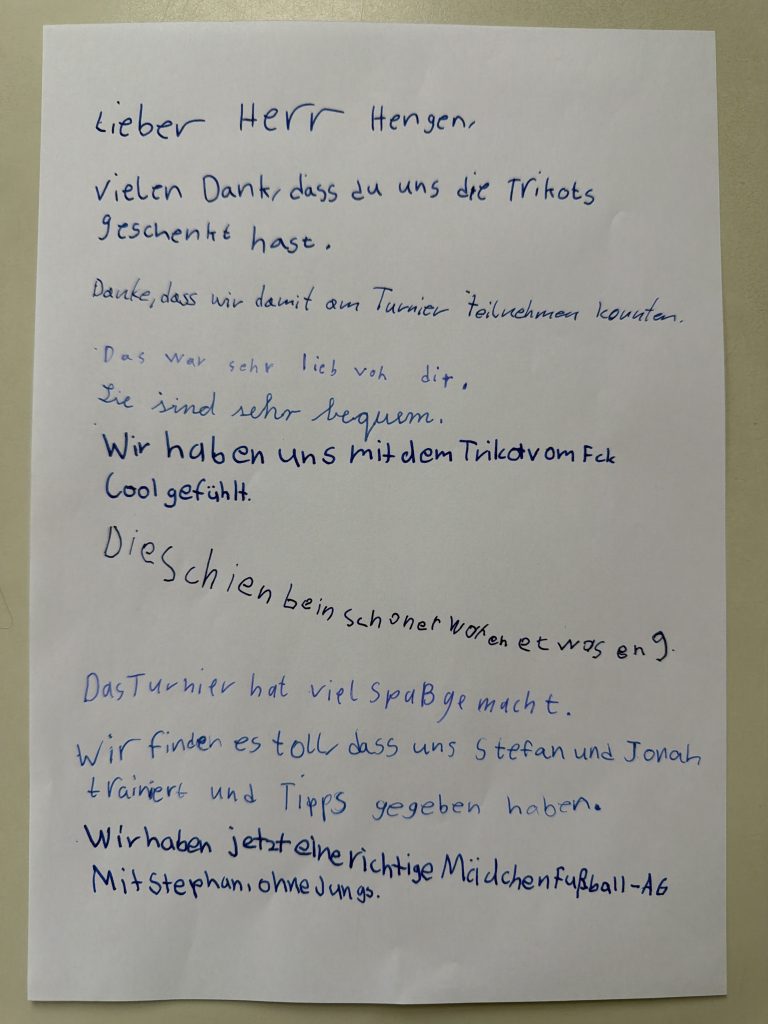 Lieber Herr Hengen,
vielen Dank, dass du uns die Trikots
geschenkt hast.
Danke, dass wir damit am Turnier teilnehmen konnten.
Das war sehr lieb von dir.
Sie sind sehr bequem.
Wir haben uns mit dem Trikot vom Fck
Cool gefühlt.
Die Schienbeinschoner waren etwas eng.
Das Turnier hat viel Spaß gemacht.
Wir finden es toll, dass uns Stefan und Jonah
trainiert und Tipps gegeben haben.
Wir haben jetzt eine richtige Mädchenfußball-AG
Mit Stephan, ohne Jungs.